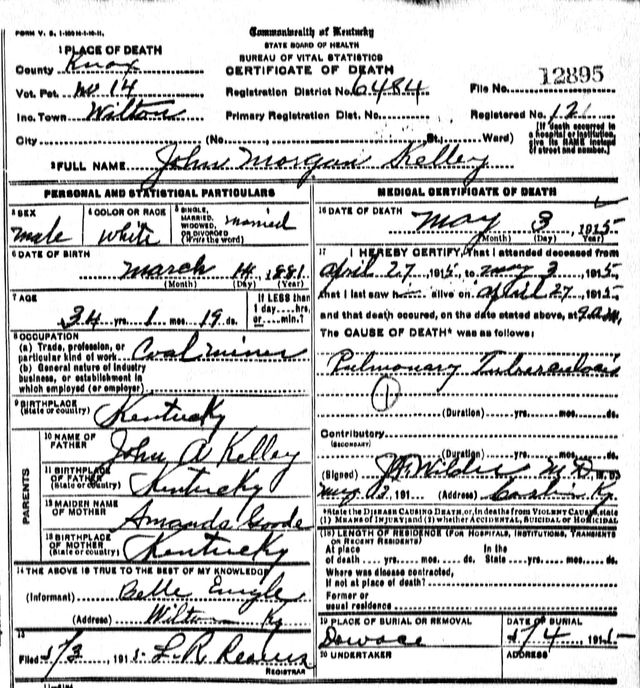 FORM V. S. 1-100M-1-10-11.
Commonwealth of Kentucky
STATE BOARD OF HEALTH
BUREAU OF VITAL STATISTICS
CERTIFICATE OF DEATH
1 PLACE OF DEATH
County Knox
Vot. Pct. No 14
Inc. Town Wilton
City (No. St., Ward)
Registration District No. 6484
Primary Registration Dist. No.
File No. 12895
Registered No. 121
[If death occurred in a hospital or institution, give its NAME instead of street and number.]
2 FULL NAME John Morgan Kelley
PERSONAL AND STATISTICAL PARTICULARS
3 SEX
male
4 COLOR OR RACE
White
5 SINGLE, MARRIED, WIDOWED, OR DIVORCED (Write the word)
married
6 DATE OF BIRTH
March 14, 1881
(Month) (Day) (Year)
7 AGE
34 yrs. 1 mos. 19 ds.
If LESS than 1 day....hrs. or....min.?
8 OCCUPATION
(a) Trade, profession, or particular kind of work Coal miner
(b) General nature of industry business, or establishment in which employed (or employer)
9 BIRTHPLACE
(State or country) Kentucky
PARENTS
10 NAME OF FATHER John A Kelley
11 BIRTHPLACE OF FATHER (State or country) Kentucky
12 MAIDEN NAME OF MOTHER Amanda Goode
13 BIRTHPLACE OF MOTHER (State or country) Kentucky
14 THE ABOVE IS TRUE TO THE BEST OF MY KNOWLEDGE
(Informant) Belle Engle
(Address) Wilton Ky
15
Filed 5/3, 1915 L. R.
REGISTRAR
MEDICAL CERTIFICATE OF DEATH
16 DATE OF DEATH
May 3, 1915
(Month) (Day) (Year)
17 I HEREBY CERTIFY, That I attended deceased from
April 27 1915, to May 3, 1915,
that I last saw him alive on April 27, 1915,
and that death occured, on the date stated above, at 9 a.m.
The CAUSE OF DEATH* was as follows:
Pulmonary Tuberculosis
1
(Duration) yrs. mos. ds.
Contributory
(SECONDARY)
(Duration) yrs. mos. ds.
(Signed) Wilder M.D.
191 (Address) Ky.
*State the DISEASE CAUSING DEATH, or, in deaths from VIOLENT CAUSES, state (1) MEANS OF INJURY; and (2) whether ACCIDENTAL, SUICIDAL or HOMICIDAL
18 LENGTH OF RESIDENCE (FOR HOSPITALS, INSTITUTIONS, TRANSIENTS OR RECENT RESIDENTS)
At place of death yrs. mos. ds. In the State yrs. mos. ds.
Where was disease contracted, if not at place of death?
Former or usual residence
19 PLACE OF BURIAL OR REMOVAL
DATE OF BURIAL
5/4, 1915
20 UNDERTAKER
ADDRESS